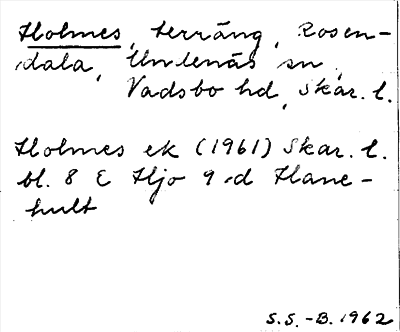 Holmes, terräng, Rosen-
dala, Undenäs sn,
Vadsbo hd, Skar. l.
Holmes ek (1961) Skar. l.
bl. 8 E Hjo 9 d Hane-
hult
S.S. -B. 1962